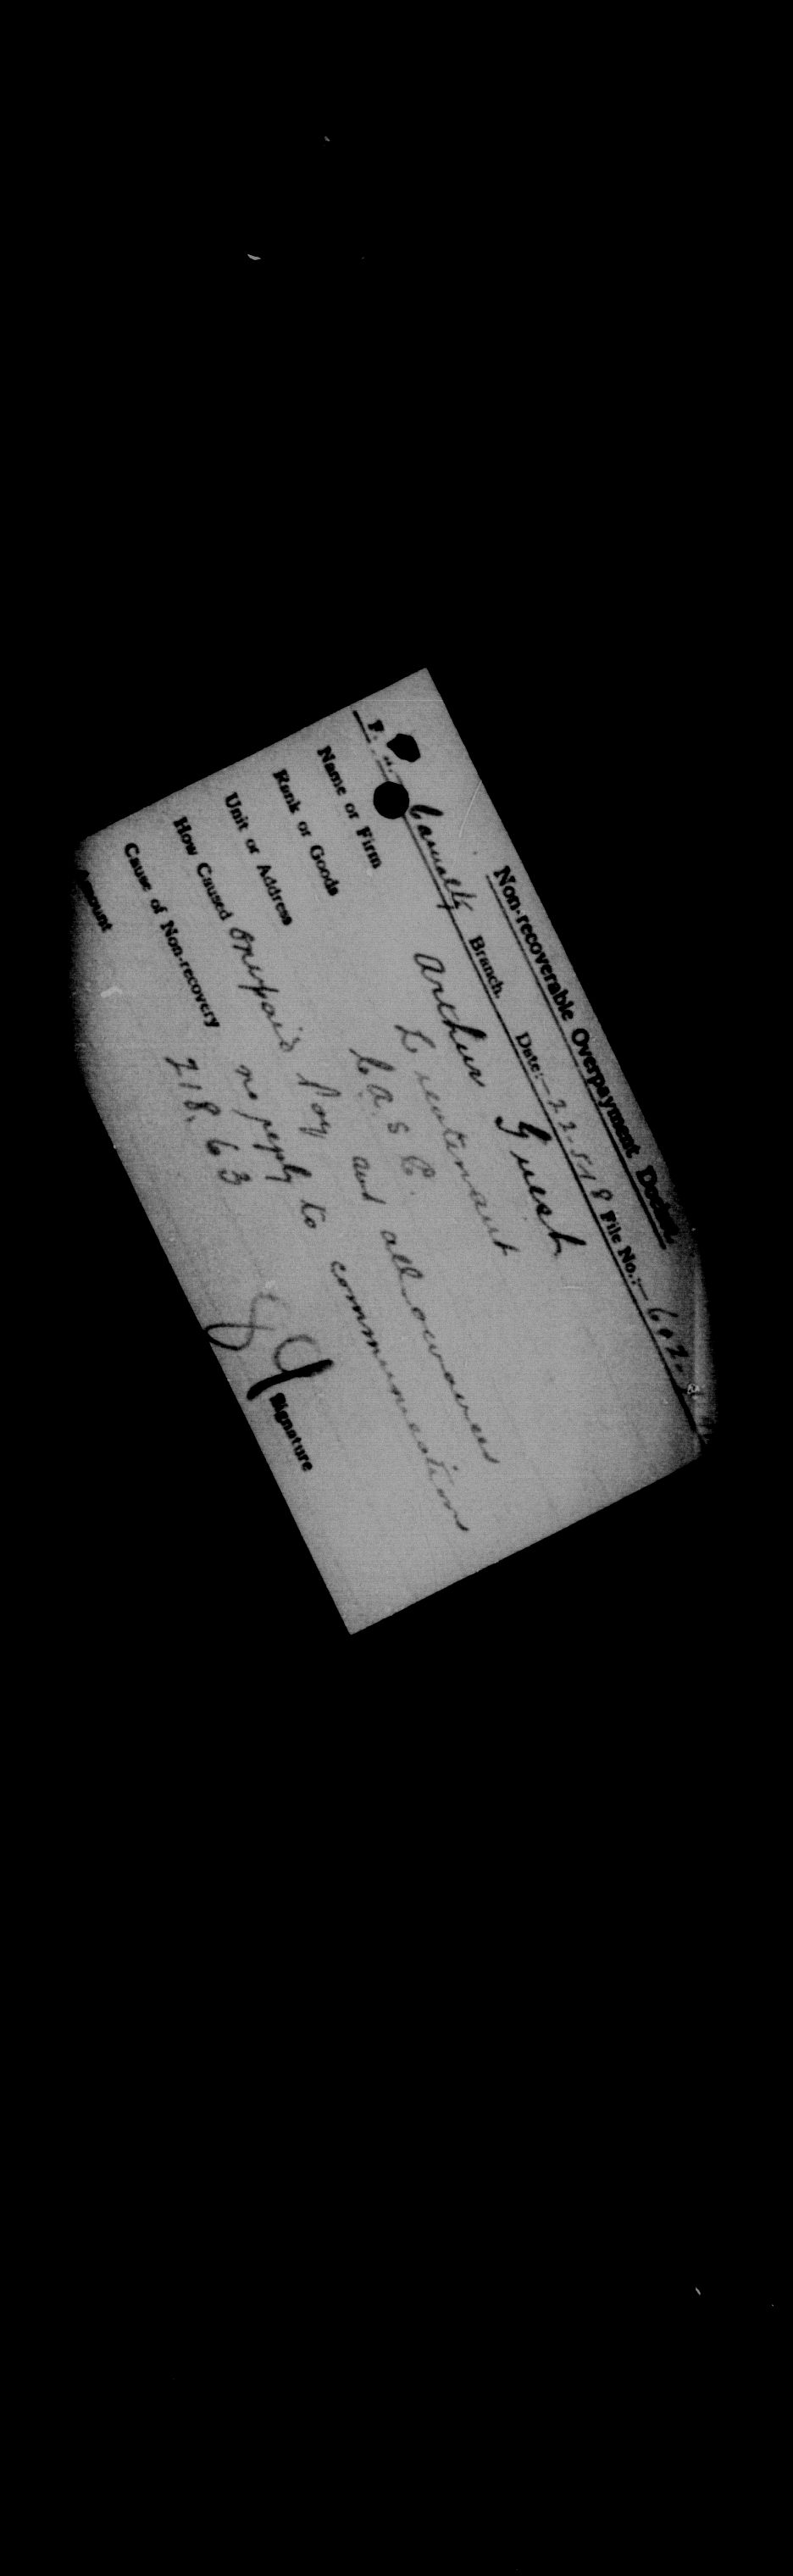 Non-recoverable Overpayment Docket
Casualty Branch. Date:- 22.5.18 File No.:- 602-
Name or Firm Arthur Guest
Rank or Goods Lieutenant
Unit or Address C.A.S.C.
How Caused Overpaid Pay and allowances
Cause of Non-recovery no reply to communications
Amount 218.63
Signature